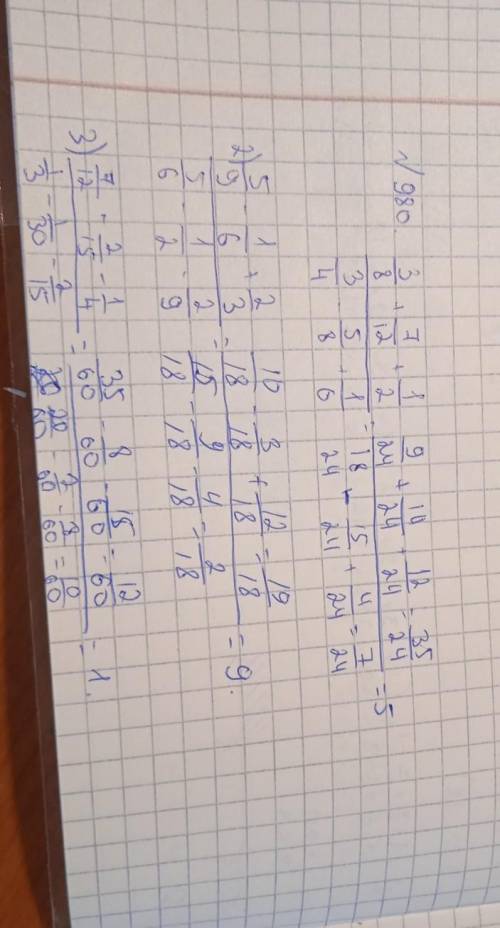 №980
3/8 + 7/12 + 1/2 = 9/24 + 14/24 + 12/24 = 35/24
3/4 - 5/8 + 1/6 18/24 - 15/24 + 4/24 = 7/24 = 5
2) 5/9 - 1/6 + 2/3 = 10/18 - 3/18 + 12/18 = 19/18
5/6 - 1/2 - 2/9 15/18 - 9/18 - 4/18 = 2/18 = 9.
3) 7/12 - 2/15 - 1/4 = 35/60 - 8/60 - 15/60 = 12/60
1/3 - 1/30 - 2/15 20/60 - 2/60 - 8/60 = 10/60 = 1.